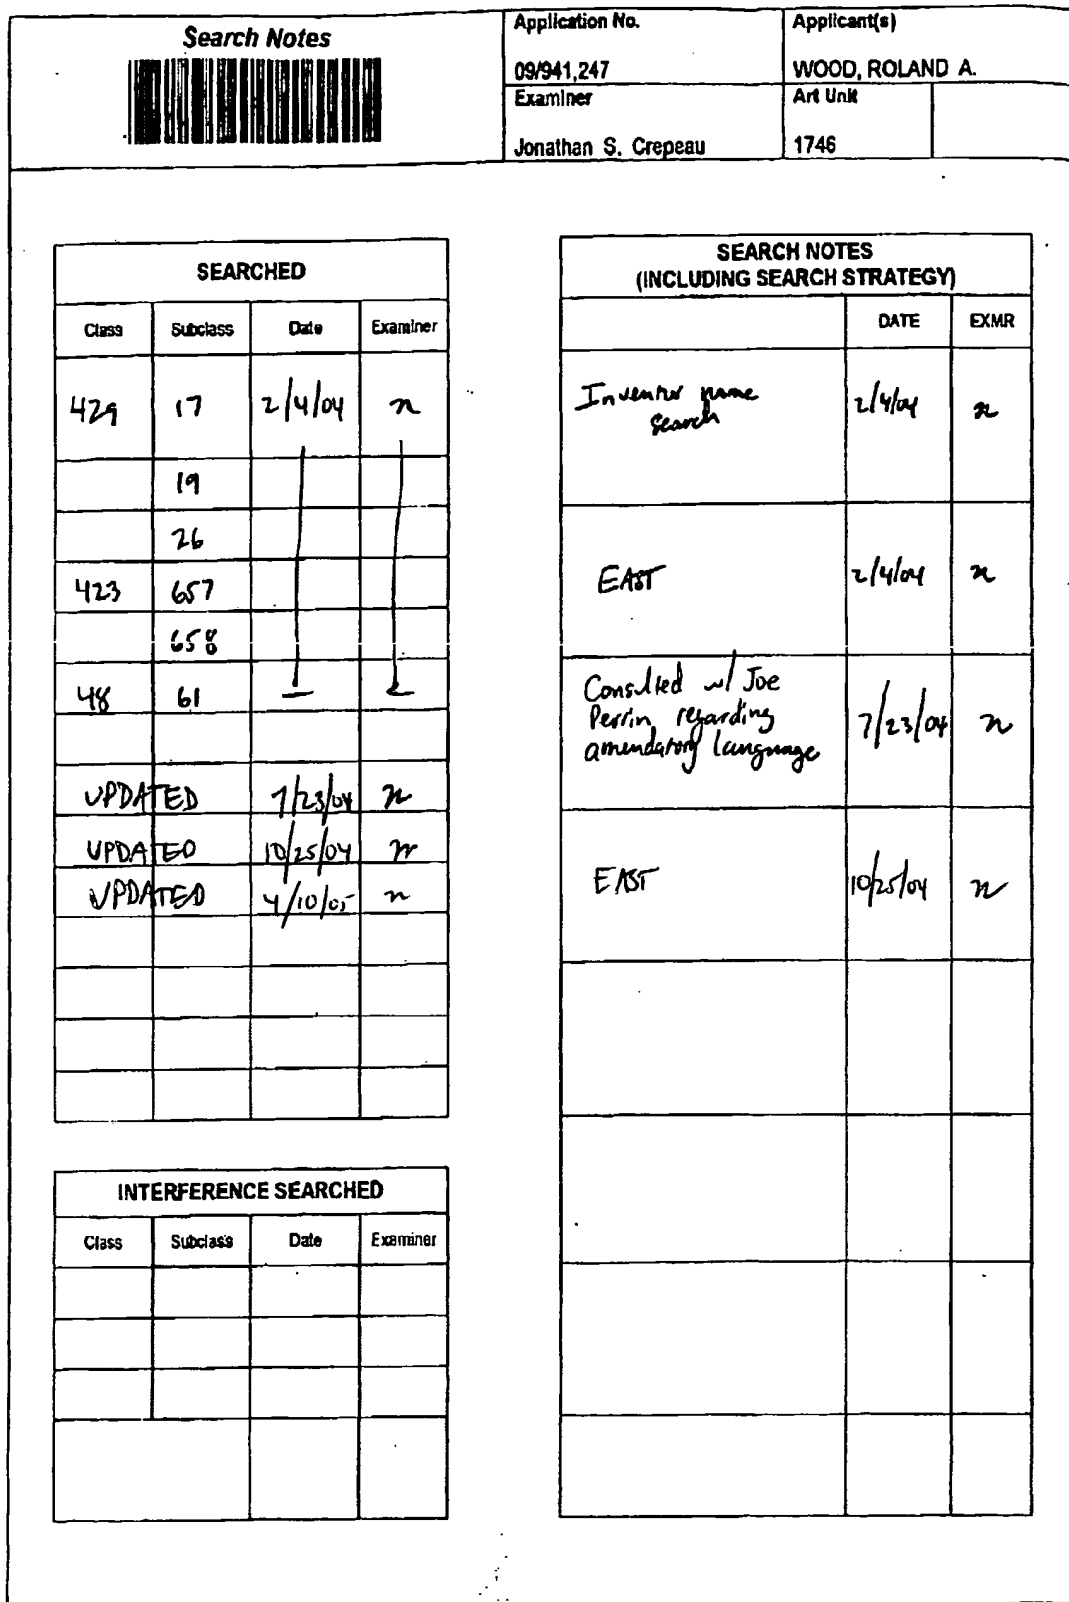 Search Notes
Application No.
Applicant(s)
09/941,247
WOOD, ROLAND A.
Examiner
Art Unit
Jonathan S. Crepeau
1746
SEARCHED
Class Subclass Date Examiner
429 17 2/4/04
19
26
423 657
658
48 61
UPDATED 7/23/04
UPDATED 10/25/04
UPDATED 4/10/05
INTERFERENCE SEARCHED
Class Subclass Date Examiner
SEARCH NOTES
(INCLUDING SEARCH STRATEGY)
DATE EXMR
Inventor name
search 2/4/04
EAST 2/4/04
Consulted w/ Joe
Perrin regarding
amendatory language 7/23/04
EAST 10/25/04